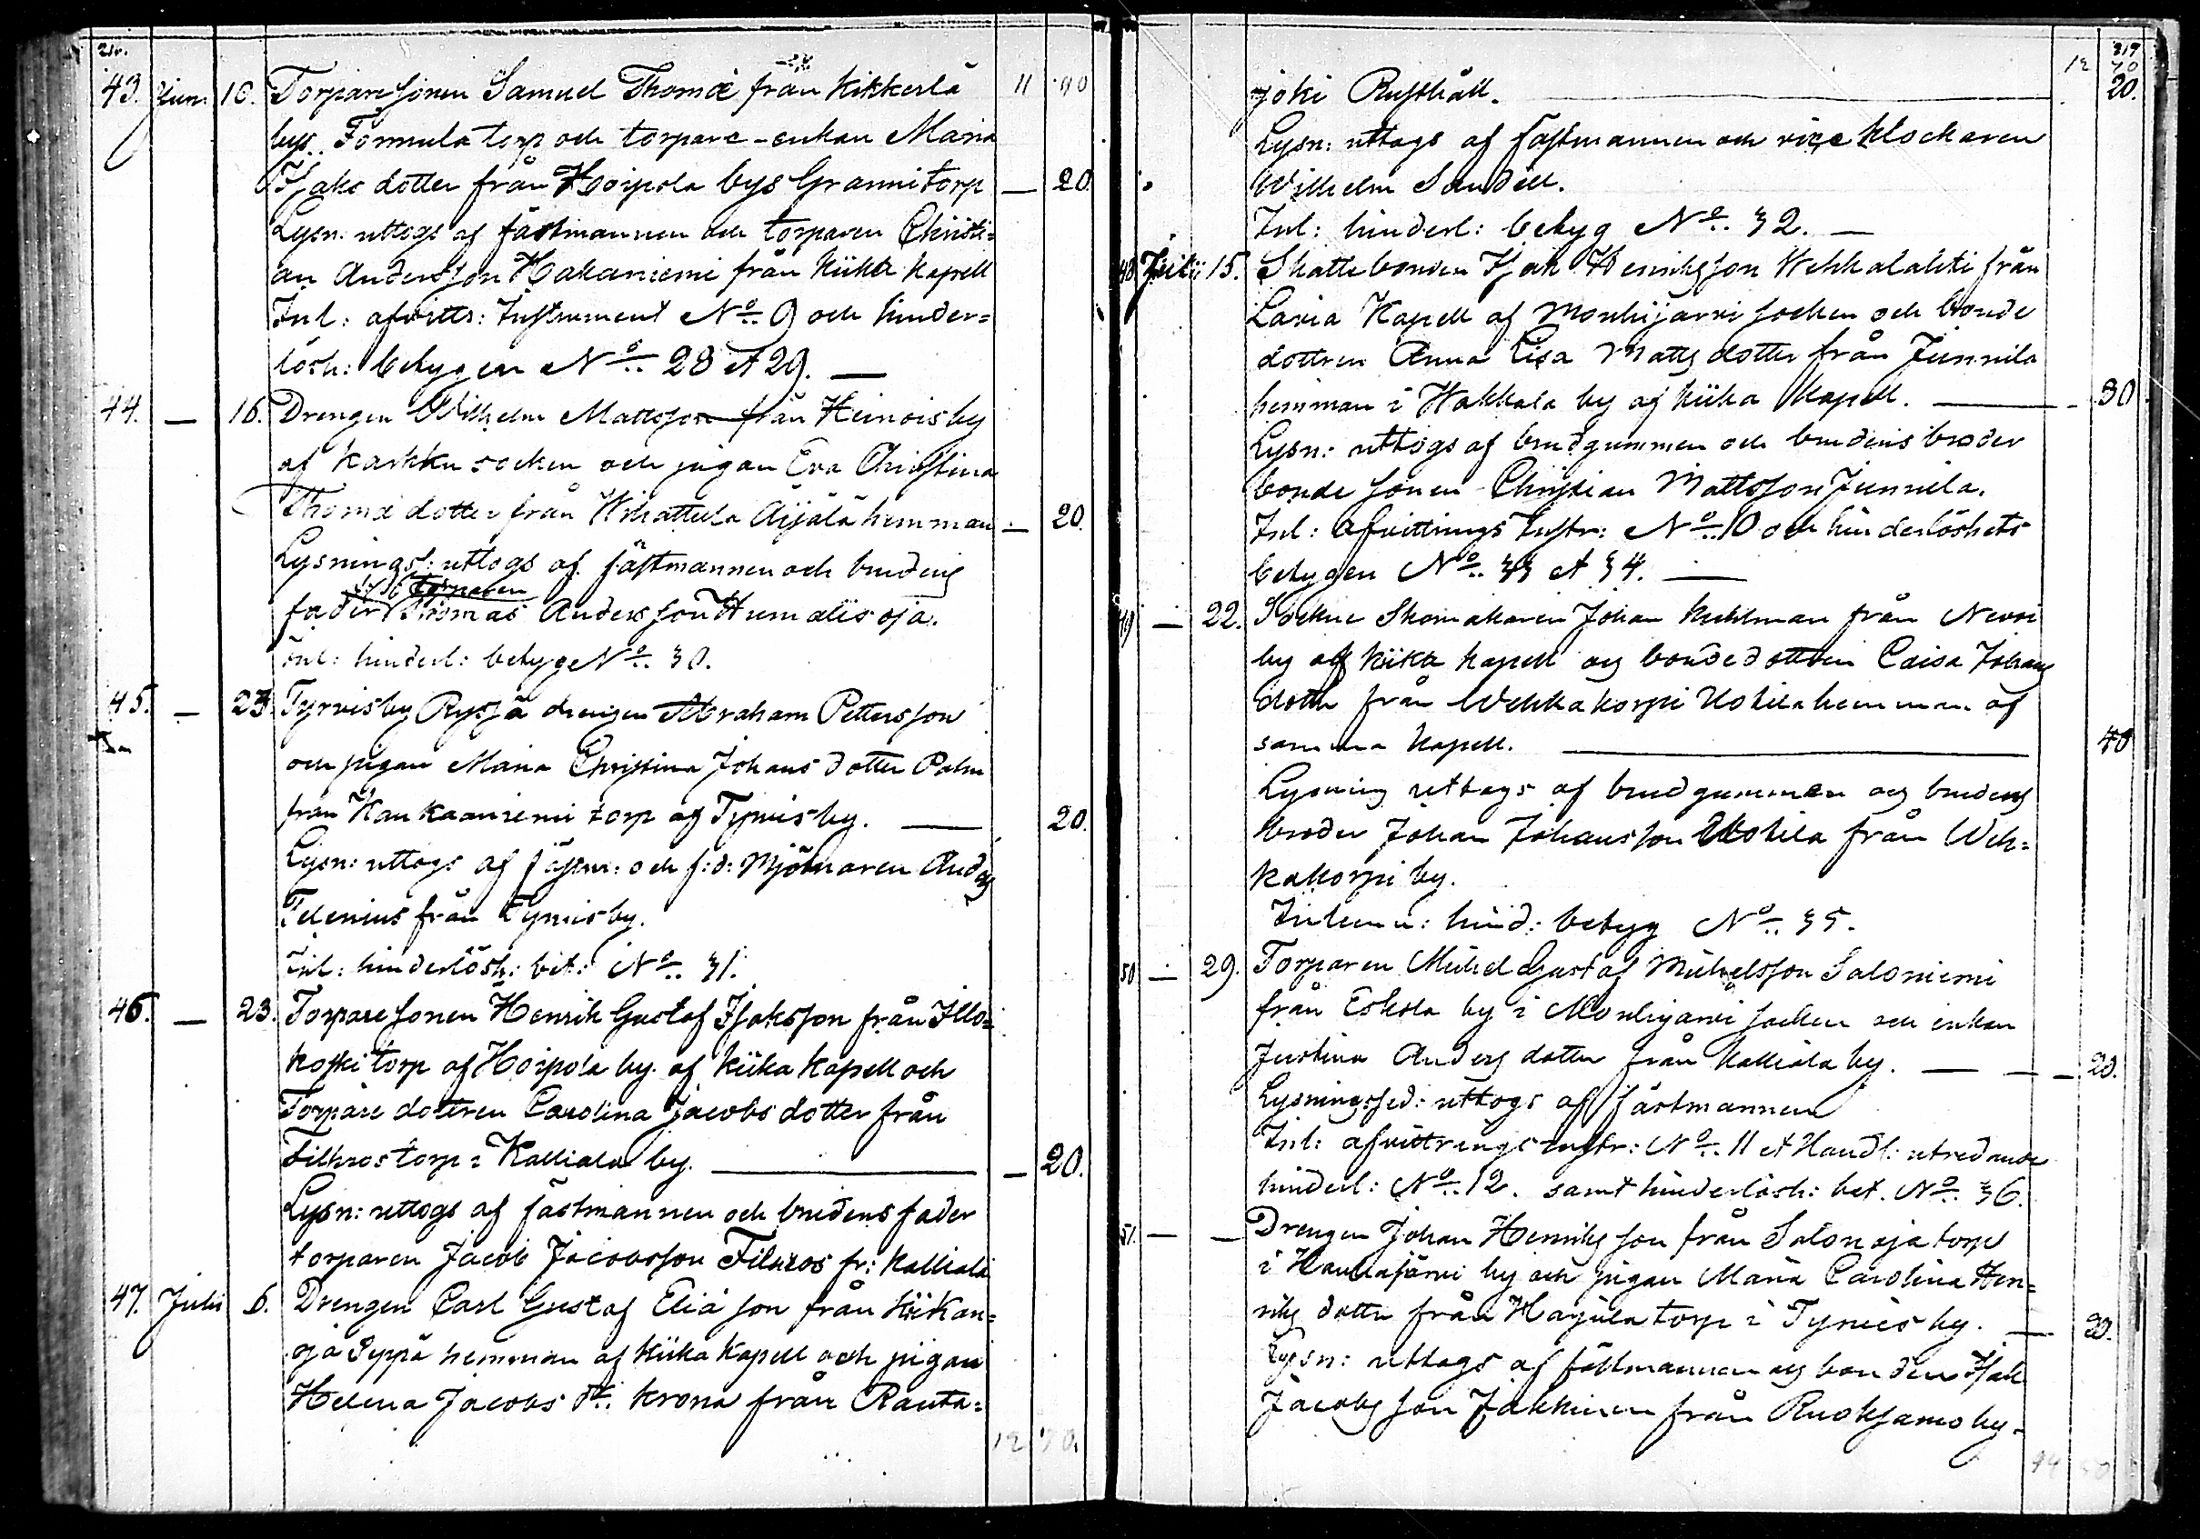 43. Juni 10. Torpare sonen Samuel Thomæ från Kikkerlä 11 90
bys Tommula torp och torpare-enkan Maria
Isaks dotter från Hoipola bys Granni torp — 20.
Lysn. uttogs af fästmannen och torparen Christi=
an Andersson Hakaniemi från Kiikka Kapell
Inl: afvittr: Instrument No. 9 och hinder=
lösh: betygen No. 28 et 29. —
44. — 16. Drengen Wilhelm Mattsson från Heinois by
af Karkku socken och pigan Eva Christina
Thomæ dotter från Wihattula Äijälä hemman — 20.
Lysnings: uttogs af fästmannen och brudens
torparen
fader Thomas Andersson Humalisoja.
Inl: hinderl: betyg No. 30.
45. — 23. Tyrvisby Ryssjä drengen Abraham Pettersson
och pigan Maria Christina Johans dotter Palm
från Kaukaaniemi torp af Tyrvisby. — 20.
Lysn: uttogs af fästm: och f:d: Mjölnaren Anders
Telenius från Tyrvisby.
Inl: hinderlösh: bet: No. 31.
46. — 23. Torpare sonen Henrik Gustaf Isaksson från Illo=
koski torp af Hoipola by af Kiikka Kapell och
Torpare dottren Carolina Jacobs dotter från
Filhros torp i Kalliala by. — 20.
Lysn: uttogs af fästmannen och brudens fader
torparen Jacob Jacobsson Filhros fr: Kalliala
47. Julii 6. Drengen Carl Gustaf Eliæ son från Kiikan=
oja Seppä hemman af Kiikka Kapell och pigan
Helena Jacobs dr. Krona från Rauta=
12 70.
319
12 70
joki Rusthåll. — 20.
Lysn: uttogs af fästmannen och vice Klockaren
Wilhelm Sandell.
Inl: hinderl: betyg No. 32. —
48 Julii 15. Skattebonden Isak Henriksson Wehkalahti från
Lavia Kapell af Mouhijärvi socken och bonde
dottren Anna Lisa Matts dotter från Junnila
hemman i Hakkala by af Kiikka Kapell. — 30
Lysn: uttogs af brudgummen och brudens broder
bonde sonen Christian Mattsson Junnila.
Inl: Afvittrings Instr: No. 10 och hinderlöshets
betygen No. 33 et 34. —
49 — 22. Sockne Skomakaren Johan Kuhlman från Nevri
by af Kiikka kapell och bondedottren Caisa Johans
dotter från Wehkakorpi Uotila hemman af
samma kapell. — 40
Lysning uttogs af brudgummen och brudens
broder Johan Johansson Uotila från Weh=
kakorpi by.
Inlemn: hind: betyg No. 35.
50 — 29. Torparen Michel Gustaf Michelsson Saloniemi
från Eskola by i Mouhijärvi socken och enkan
Justina Anders dotter från Kalliala by. — 20.
Lysningssed: uttogs af fästmannen
Inl: afvittrings instr: No. 11 et Handl: utredande
hinderl: No. 12. samt hinderlösh: bet. No. 36.
51. — — Drengen Johan Henriksson från Salonoja torp
i Houhajärvi by och pigan Maria Carolina Hen=
riks dotter från Harjula torp i Tyrvis by. — 20.
Lysn: uttogs af fästmannen och bonden Isak
Jacobsson Jakkinen från Ruoksamo by.